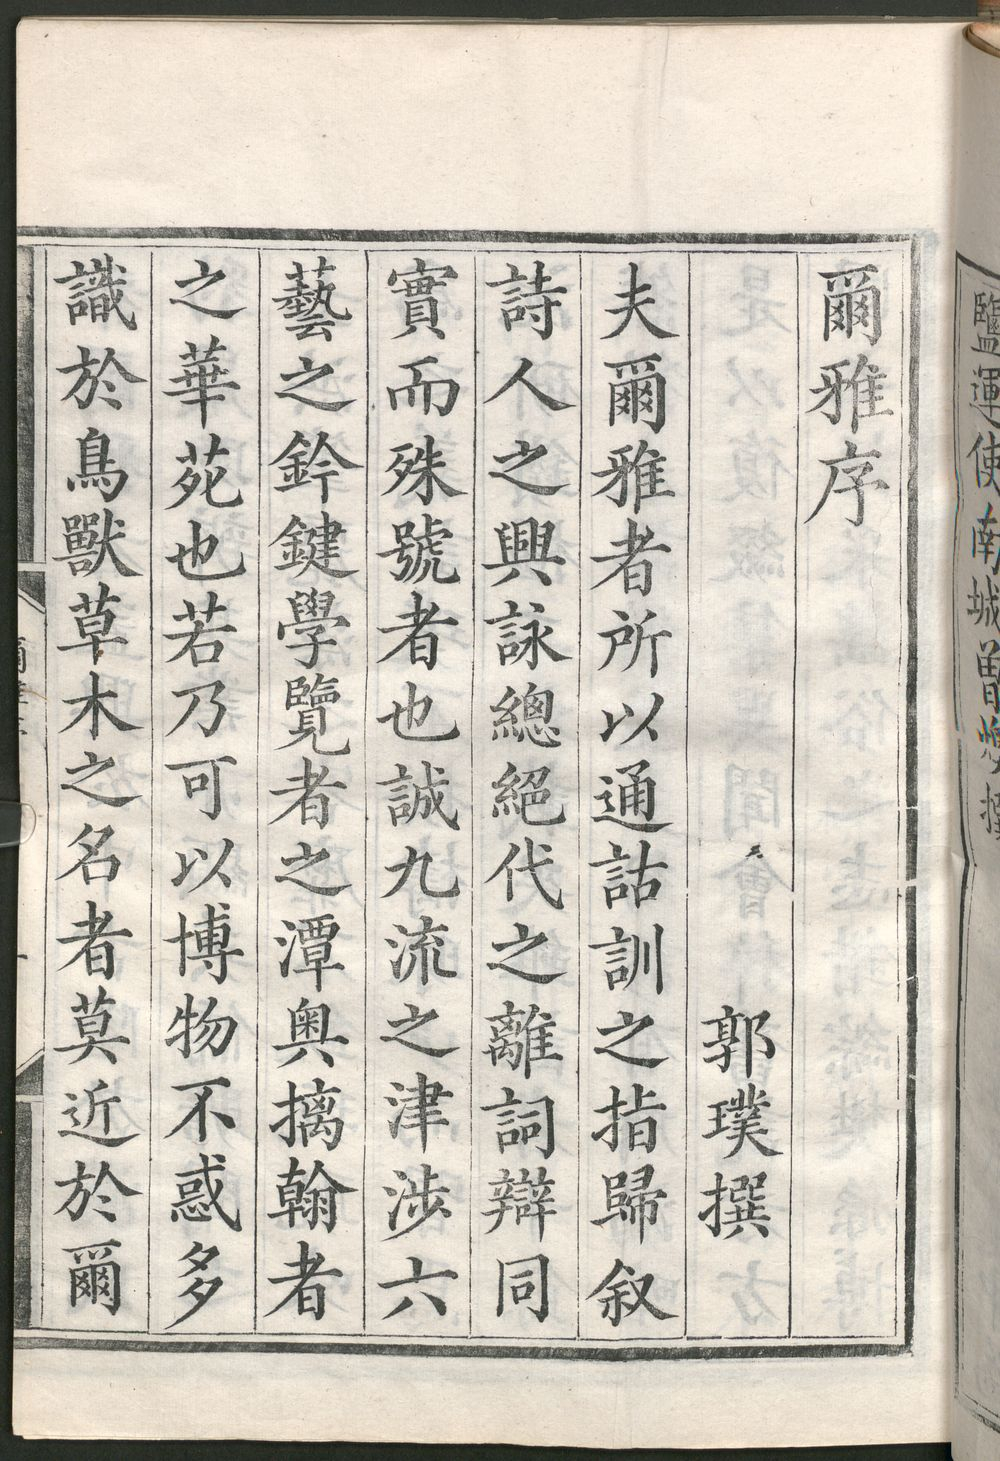 鹽運使南城曾燠撰
爾雅序
郭璞撰
夫爾雅者所以通詁訓之指歸叙
詩人之興詠總絕代之離詞辯同
實而殊號者也誠九流之津涉六
藝之鈐鍵學覽者之潭奧摛翰者
之華苑也若乃可以博物不惑多
識於鳥獸草木之名者莫近於爾